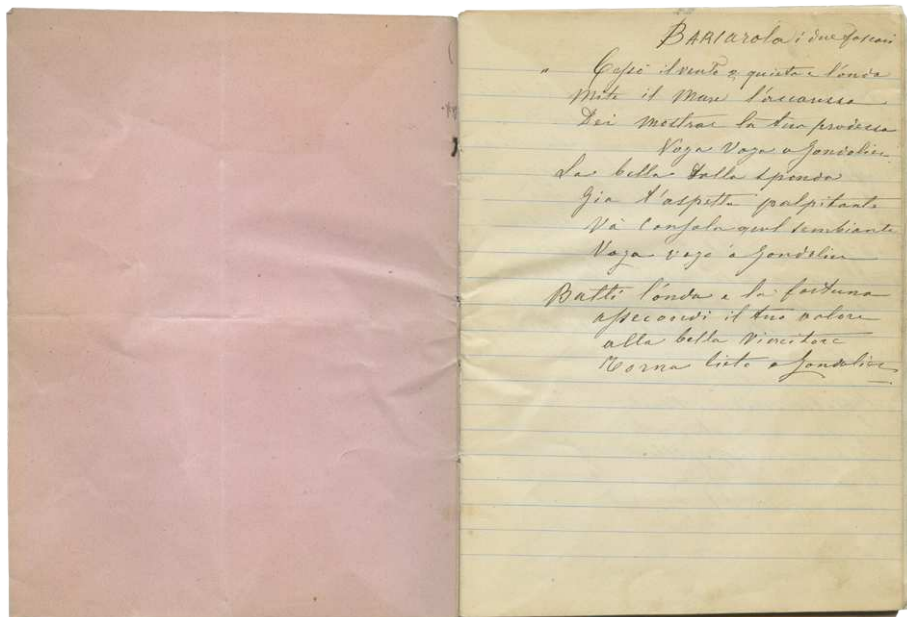 BARCarola i due foscari
" Cessi il vento e quieta e l'onda
Mite il mare l'accarezza
Dei mostrar la tua prodezza
Voga Voga o Gondolier.
La bella dalla sponda
Gia t'aspetta palpitante
Và Consola quel sembiante
Voga voga o Gondolier
Batti l'onda e la fortuna
assecondi il tuo valore
alla bella Vincitore
Torna lieto o Gondolier